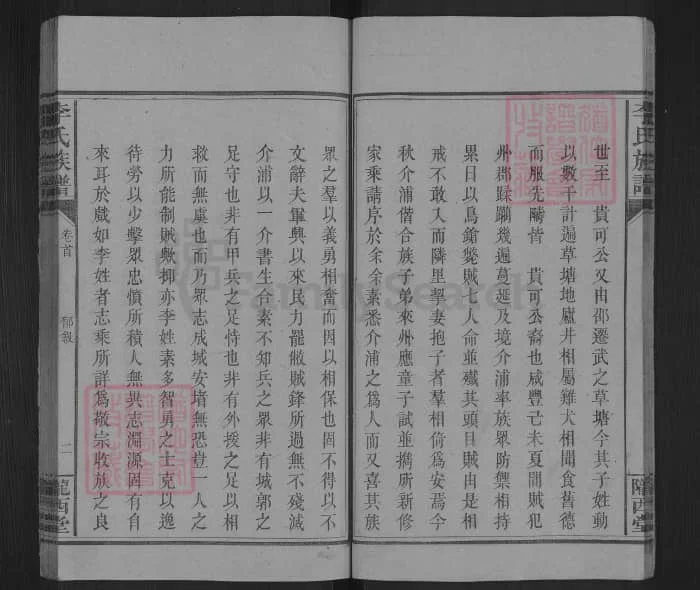 世至　貴可公又由邵遷武之草塘今其子姓動
以數千計遍草塘地廬井相屬雞犬相聞食舊德
而服先疇皆　貴可公裔也咸豐己未夏閒賊犯
州郡蹂躪幾遍蔓延及境介浦率族眾防禦相持
累日以鳥鎗斃賊七人命並殲其頭目賊由是相
戒不敢入而隣里挈妻抱子者羣相倚為安焉今
秋介浦偕合族子弟來州應童子試並攜所新修
家乘請序於余余素悉介浦之為人而又喜其族
眾之羣以義勇相奮而因以相保也固不得以不
文辭夫軍興以來民力罷敝賊鋒所過無不殘滅
介浦以一介書生合素不知兵之眾非有城郭之
足守也非有甲兵之足恃也非有外援之足以相
救而無虞也而乃眾志成城安堵無恐豈一人之
力所能制賊歟抑亦李姓素多智勇之士克以逸
待勞以少擊眾忠憤所積人無異志淵源固有自
來耳於戲如李姓者志乘所詳為敬宗收族之良
李氏族譜
卷首
郁敘
二
隴西堂
李氏族譜
隴西堂
FamilySearch